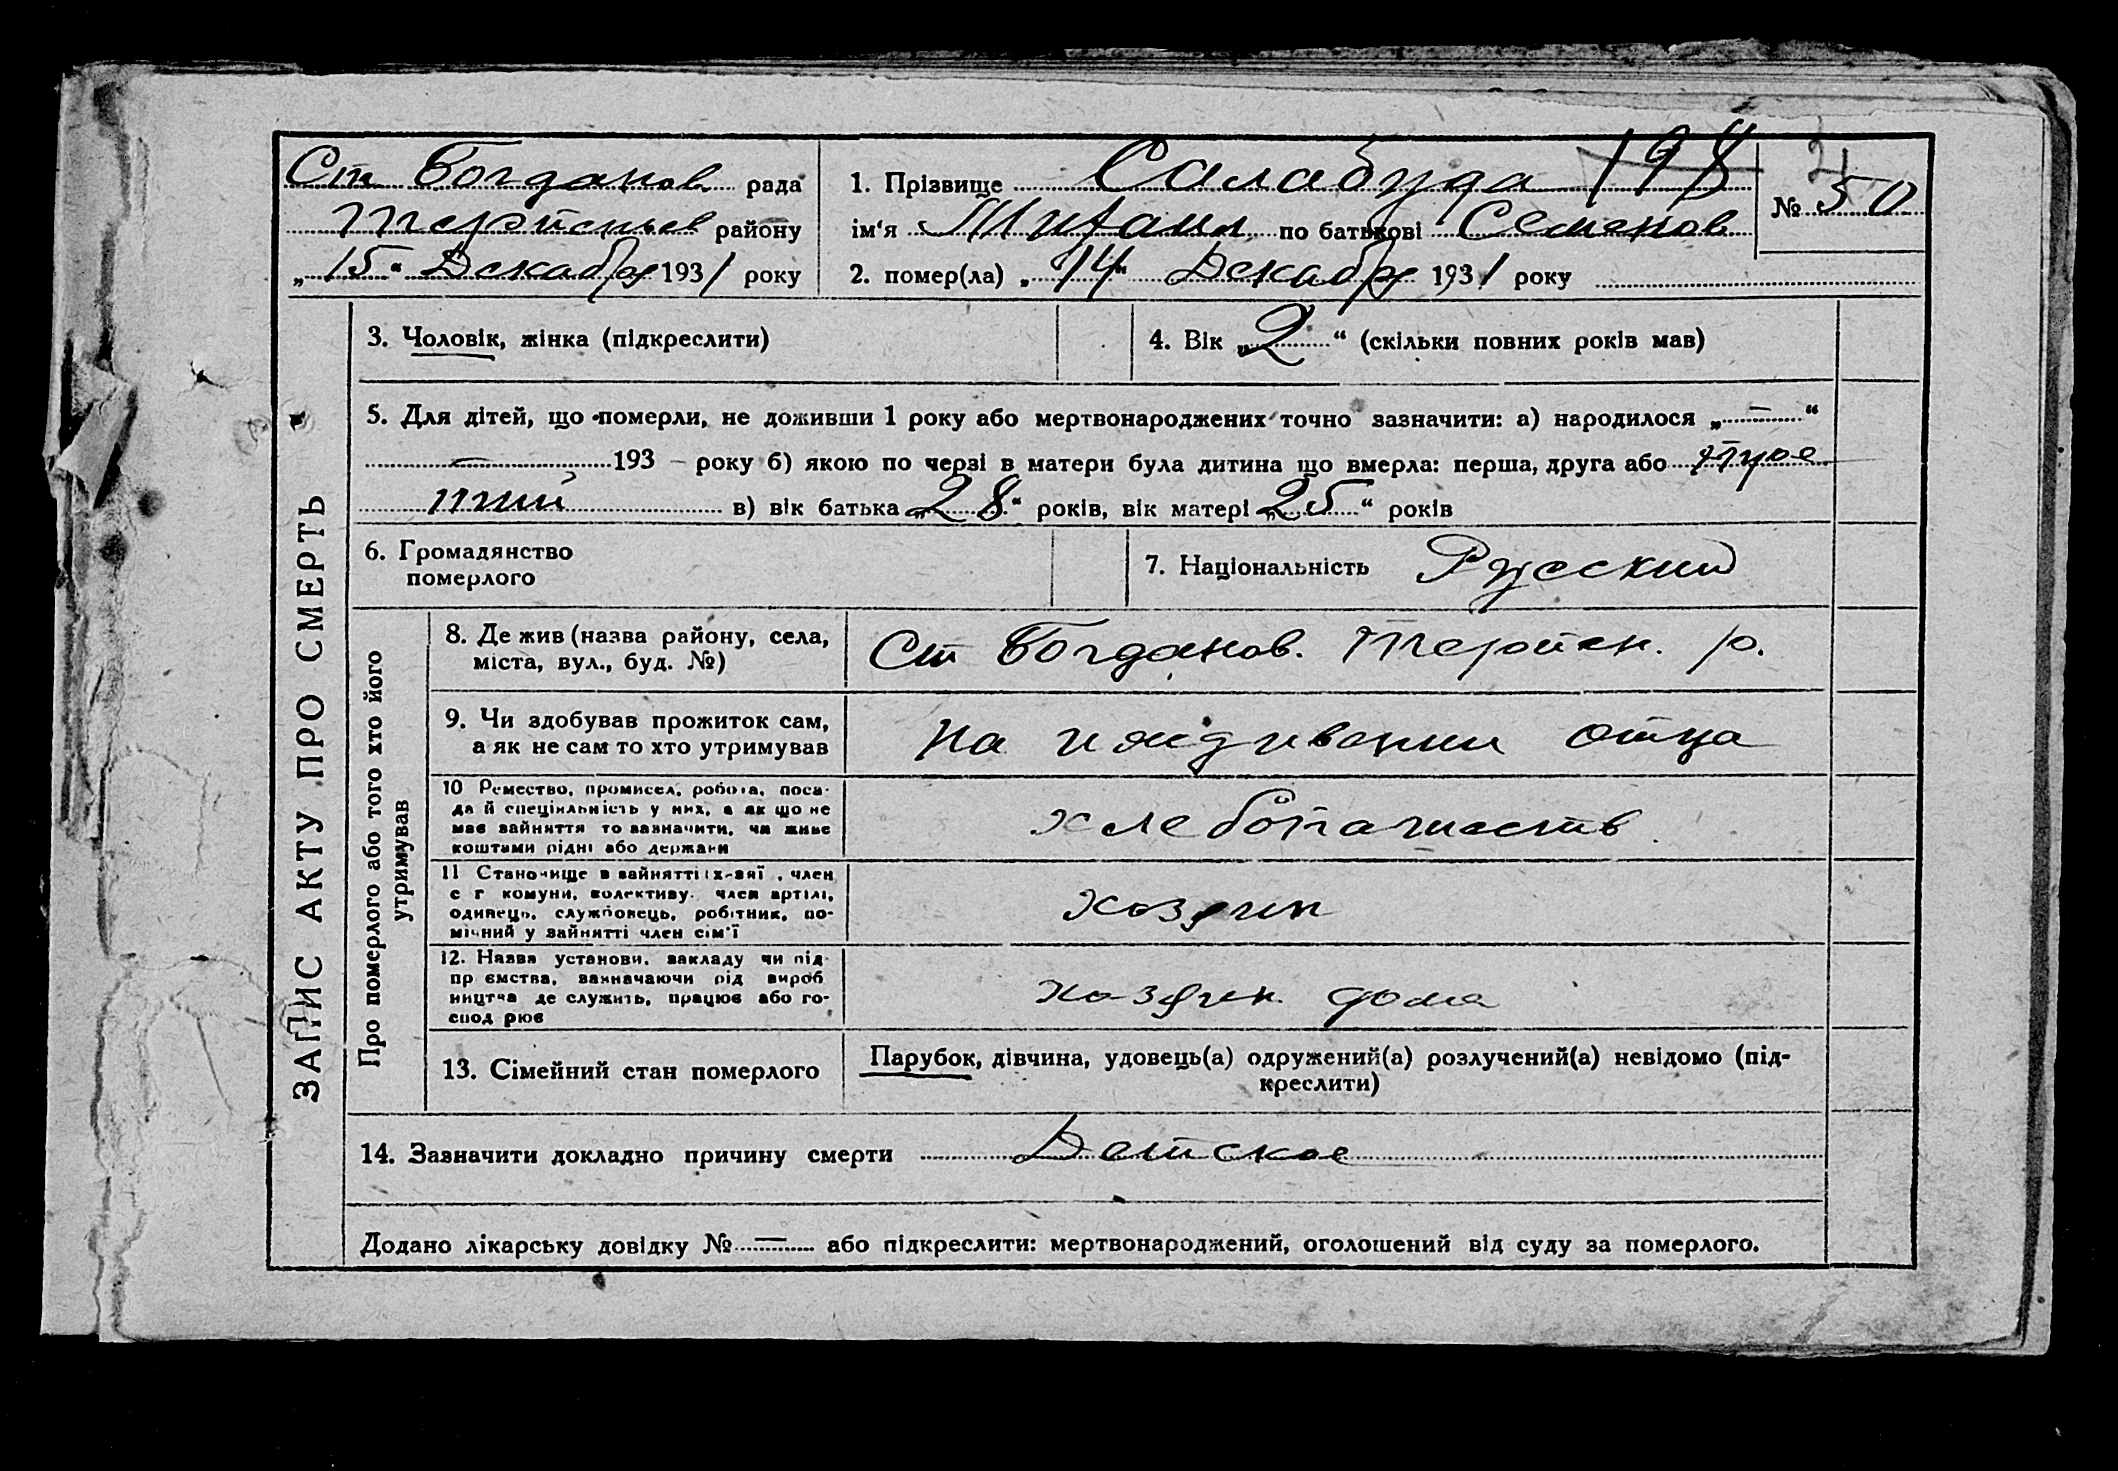 Ст Богданов рада
Терпеньев району
„15“ Декабря 1931 року
1. Прізвище Салабуда 198
№ 50
ім'я Михаил по батькові Семенов
2. помер(ла) „14“ Декабря 1931 року
ЗАПИС АКТУ ПРО СМЕРТЬ
3. Чоловік, жінка (підкреслити)
4. Вік „2“ (скільки повних років мав)
5. Для дітей, що померли, не доживши 1 року або мертвонароджених точно зазначити: а) народилося „—“
— 193 — року б) якою по черзі в матери була дитина що вмерла: перша, друга або
в) вік батька „28“ років, вік матері „25“ років
6. Громадянство
померлого
7. Національність Русский
Про померлого або того хто його
утримував
8. Де жив (назва району, села,
міста, вул., буд. №)
Ст Богданов. Терпен. р.
9. Чи здобував прожиток сам,
а як не сам то хто утримував
На иждивении отца
10 Ремество, промисел, робота, поса-
да й спеціяльність у них, а як що не
має зайняття то зазначити, чи живе
коштами рідні або держави
хлебопашеств
11 Становище в зайнятті , член
с г комуни, колективу. член артілі,
одинець, службовець, робітник, по-
мічний у зайнятті член сім'ї
хозяин
12. Назва установи, закладу чи під-
пр ємства, зазначаючи рід вироб
ництва де служить, працює або го-
спод рює
хозяин дома
13. Сімейний стан померлого
Парубок, дівчина, удовець(а) одружений(а) розлучений(а) невідомо (під-
креслити)
14. Зазначити докладно причину смерти Детское
Додано лікарську довідку № — або підкреслити: мертвонароджений, оголошений від суду за померлого.